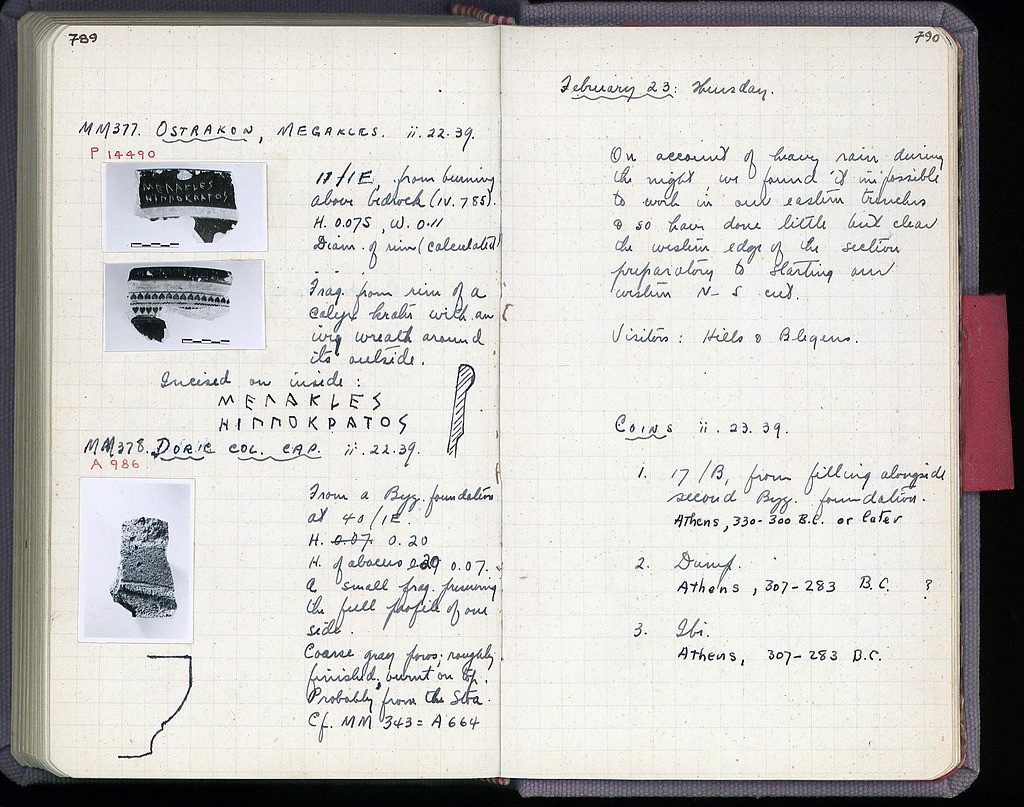 789
MM377. OSTRAKON, MEGAKLES. ii.22.39.
P 14490
MEΛAKLES
HIΠΠOKPATOS
11/1E, from burning
above bedrock (IV. 785).
H. 0.075, W. 0.11
Diam. of rim (calculated)
Frag. from rim of a
calyx krater with an
ivy wreath around
its outside.
Incised on inside :
MEΛAKLES
HIΠΠOKPATOS
MM378. DORIC COL. CAP. ii.22.39.
A 986
From a Byz. foundation
at 40/1E.
H. 0.07. 0.20
H. of abacus 0.07.
a small frag. preserving
the full profile of one
side.
Coarse gray poros; roughly
finished, burnt on top.
Probably from the Stoa.
Cf. MM 343 = A 664
790
February 23: Thursday.
On account of heavy rain during
the night, we found it impossible
to work in our eastern trenches
& so have done little but clear
the western edge of the section
preparatory to starting our
western N-S cut.
Visitors: Hills & Blegens.
COINS ii.23.39.
1. 17/B, from filling alongside
second Byz. foundation.
Athens, 330-300 B.C. or later
2. Dump.
Athens, 307-283 B.C. ?
3. Ibi.
Athens, 307-283 B.C.